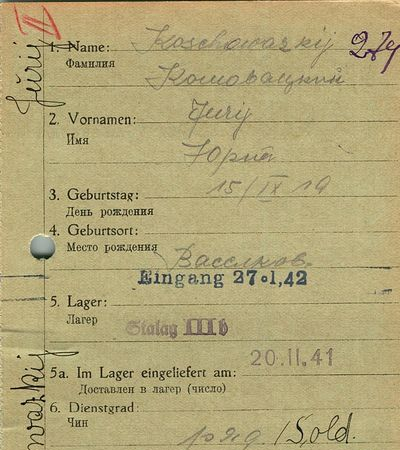 II
279
Jurij
1. Name: Koschowazkij
Фамилия
Кошовацкий
2. Vornamen: Jurij
Имя
Юрий
3. Geburtstag: 15/IX 19
День рождения
4. Geburtsort:
Место рождения
Eingang 27.1.42
5. Lager:
Лагер
Stalag III b
20.11.41
5a. Im Lager eingeliefert am:
Доставлен в лагер (число)
6. Dienstgrad:
Чин
ряд / Sold.
wazkij